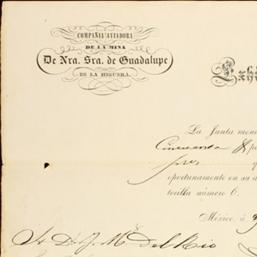 COMPAÑIA AVIADORA
DE LA MINA
De Nra. Sra. de Guadalupe
DE LA HIGUERA.
Exhi
La Junta men
Cincuenta
oportunamente en su a
tosilla número 6.
México,
S. D. J. M. del Rio